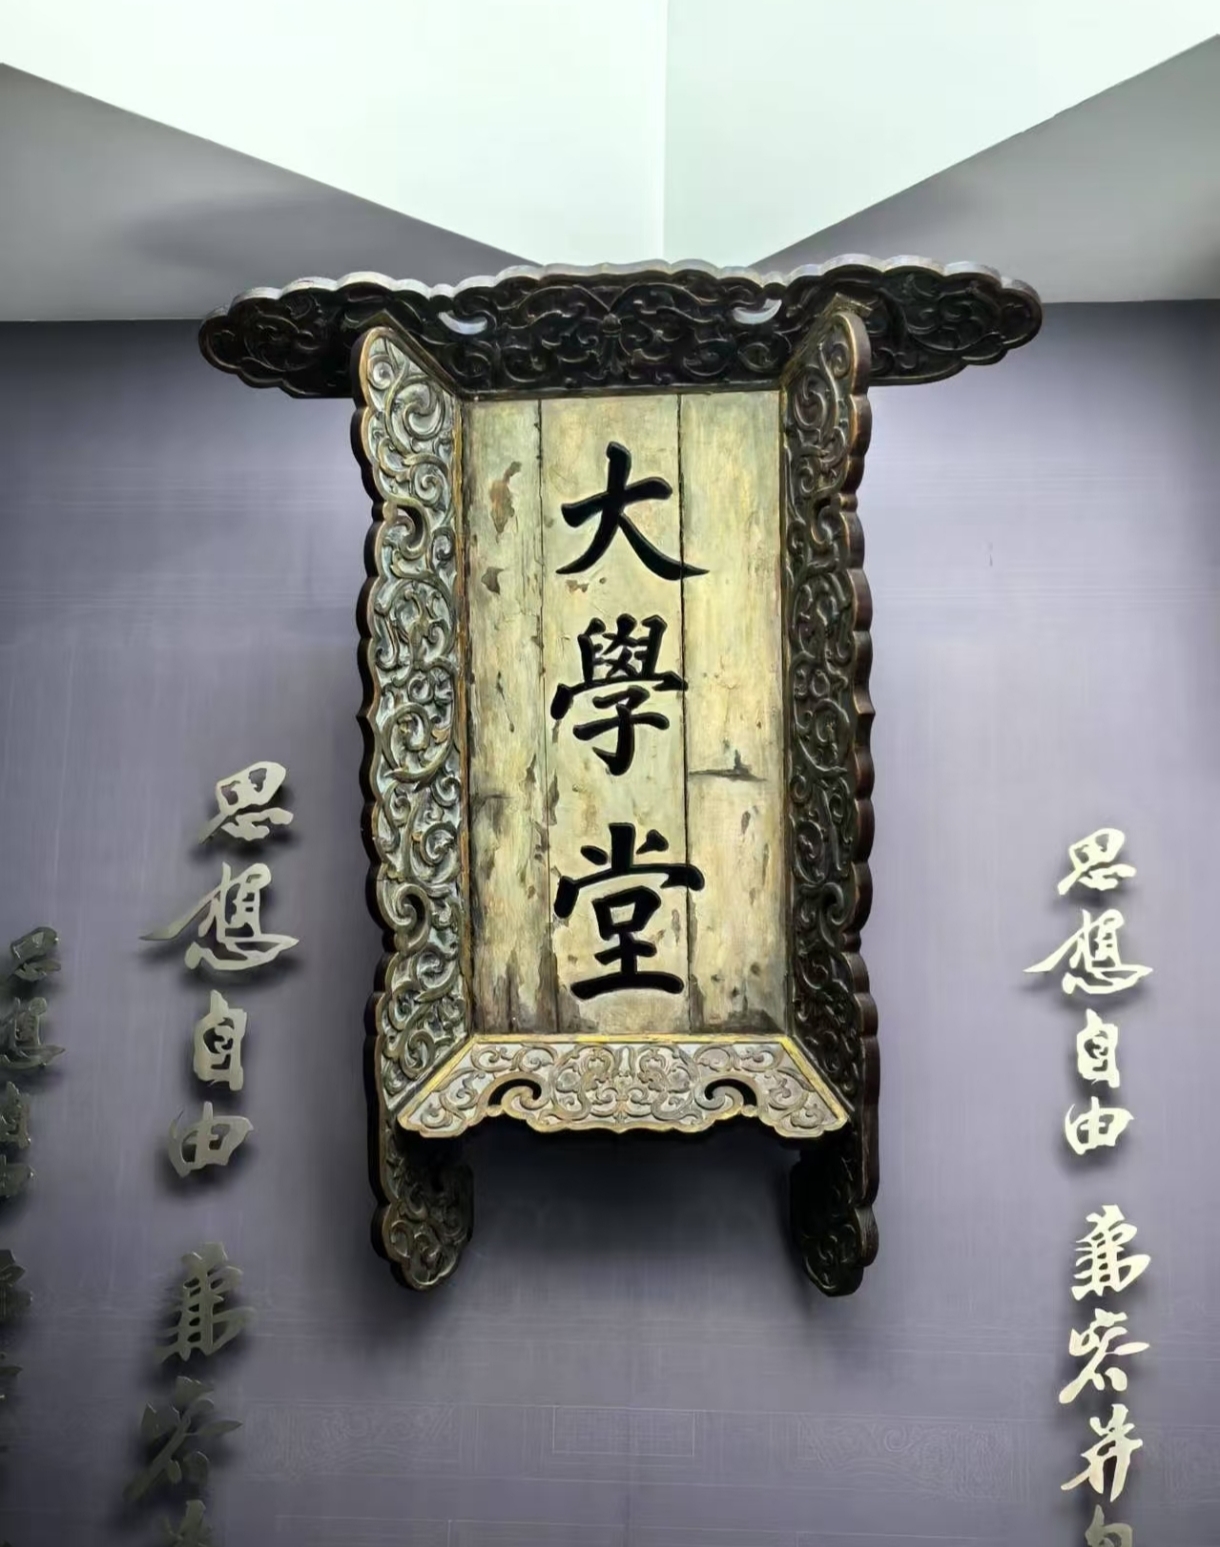 大學堂
思想自由 兼容并包
思想自由 兼容
思想自由